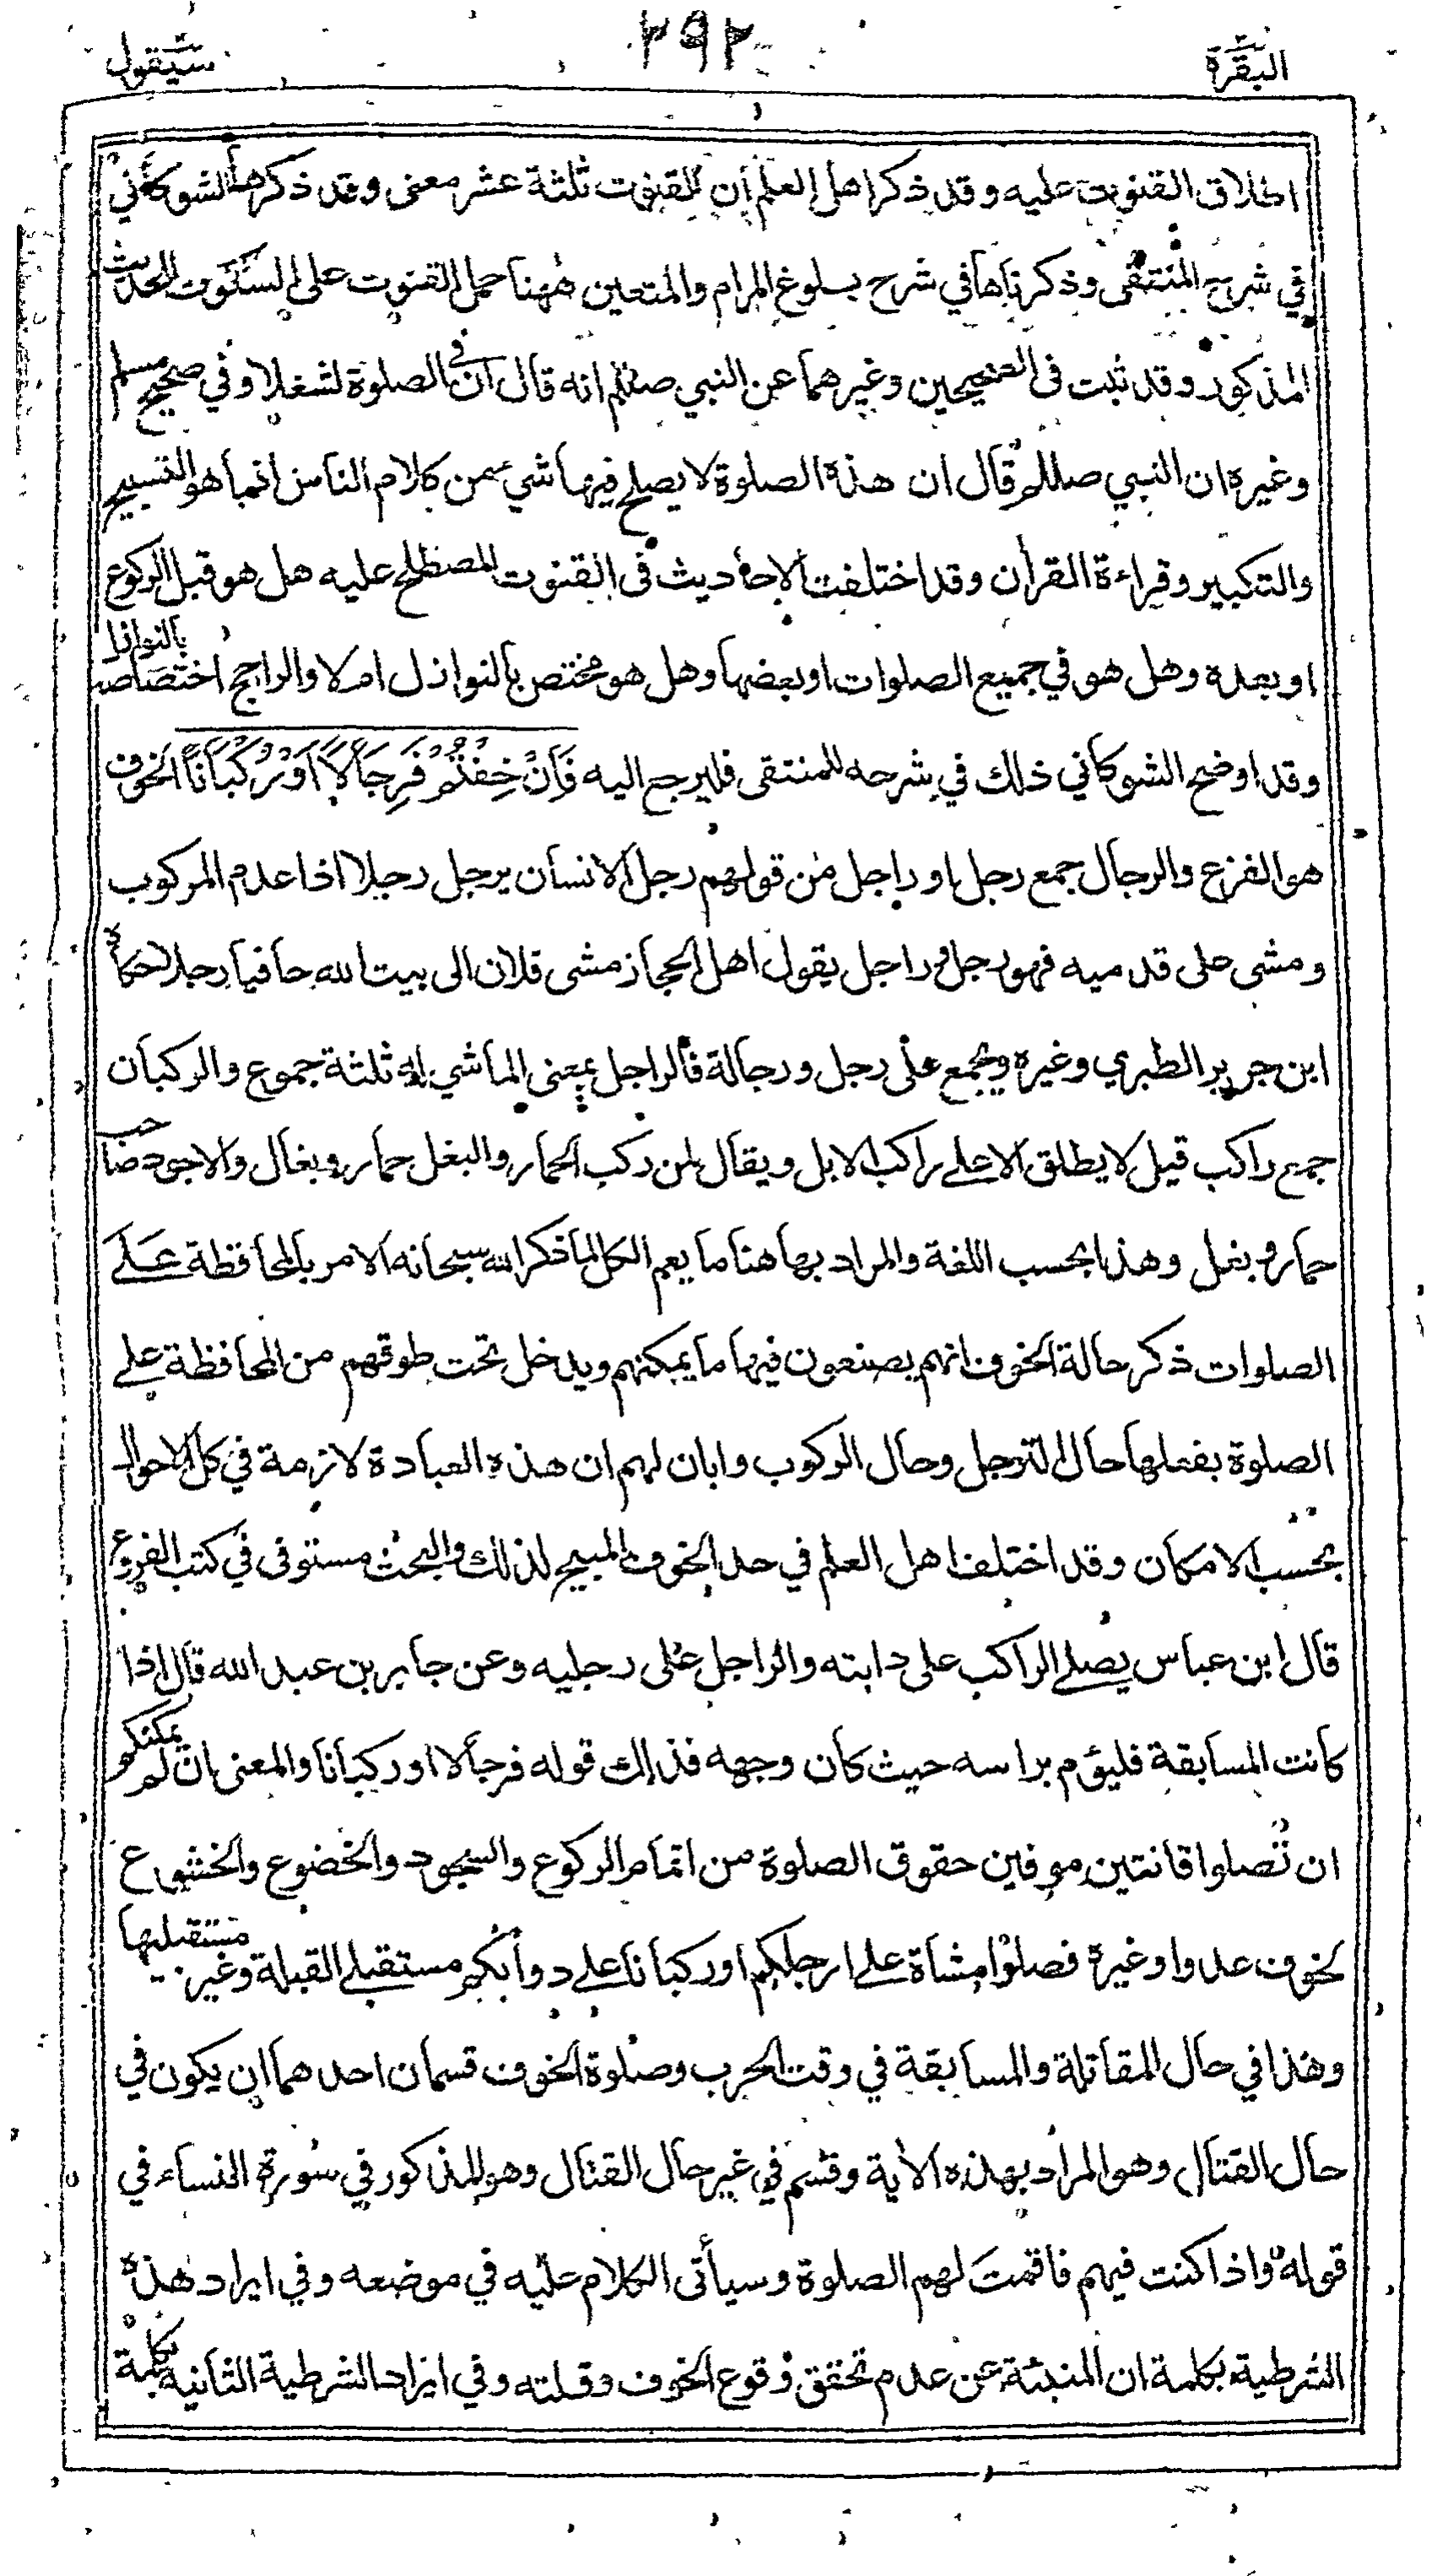 البقرة
٢٩٢
سيقول
اطلاق القنوت عليه وقد ذكر اهل العلم ان للقنوت ثلثة عشر معنى وقد ذكرها الشوكاني
في شرح المنتقى وذكرناها في شرح بلوغ المرام والمتعين ههنا حمل القنوت على السكوت للحديث
المذكور وقد ثبت فى الصحيحين وغيرهما عن النبي صللم انه قال ان في الصلوة لشغلا وفي صحيح مسلم
وغيره ان النبي صللم قال ان هذه الصلوة لا يصلح فيها شيء من كلام الناس انما هو التسبيح
والتكبير وقراءة القرأن وقد اختلفت الاحاديث فى القنوت المصطلح عليه هل هو قبل الركوع
او بعده وهل هو في جميع الصلوات او بعضها وهل هو مختص بالنوازل ام لا والراجح اختصاصه بالنوازل
وقد اوضح الشوكاني ذلك في شرحه للمنتقى فليرجع اليه فَاِنْ خِفْتُمْ فَرِجَالًا اَوْ رُكْبَانًا الخوف
هو الفزع والرجال جمع رجل او راجل من قولهم رجل الانسان يرجل رجلا اذا عدم المركوب
ومشى على قدميه فهو رجل وراجل يقول اهل الحجاز مشى فلان الى بيت الله حافيا رجلا حكاه
ابن جرير الطبري وغيره ويجمع على رجل ورجالة فالراجل بمعنى الماشي له ثلثة جموع والركبان
جمع راكب قيل لا يطلق الا على راكب الابل ويقال لمن ركب الحمار والبغل حمار وبغال والاجود صاحب
حمار وبغل وهذا بحسب اللغة والمراد بها هنا ما يعم الكل لما ذكر الله سبحانه الامر بالمحافظة على
الصلوات ذكر حالة الخوف انهم يصنعون فيها ما يمكنهم ويدخل تحت طوقهم من المحافظة على
الصلوة بفعلها حال الترجل وحال الركوب وابان لهم ان هذه العبادة لازمة في كل الاحوال
بحسب الامكان وقد اختلف اهل العلم في حد الخوف المبيح لذلك والبحث مستوفى في كتب الفروع
قال ابن عباس يصلي الراكب على دابته والراجل على رجليه وعن جابر بن عبد الله قال اذا
كانت المسابقة فليؤم براسه حيث كان وجهه فذلك قوله فرجالا او ركبانا والمعنى ان لم يمكنكم
ان تصلوا قانتين موفين حقوق الصلوة من اتمام الركوع والسجود والخضوع والخشوع
لخوف عدو او غيره فصلوا مشاة على ارجلكم او ركبانا على دوابكم مستقبلي القبلة وغير مستقبليها
وهذا في حال المقاتلة والمسابقة في وقت الحرب وصلوة الخوف قسمان احدهما ان يكون في
حال القتال وهو المراد بهذه الأية وقسم في غير حال القتال وهو المذكور في سورة النساء في
قوله واذا كنت فيهم فاقمت لهم الصلوة وسيأتى الكلام عليه في موضعه وفي ايراد هذه
الشرطية بكلمة ان المنبئة عن عدم تحقق وقوع الخوف وقلته وفي ايراد الشرطية الثانية بكلمة